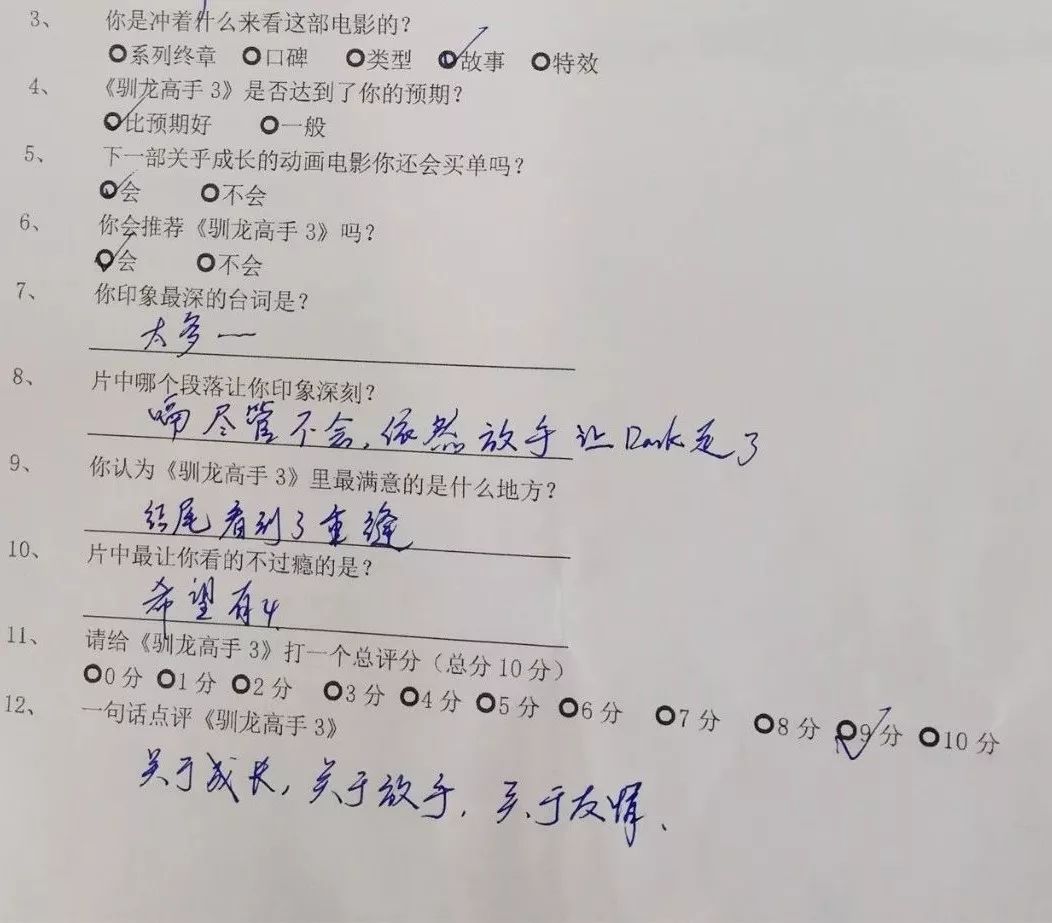 3、 你是冲着什么来看这部电影的？
系列终章 口碑 类型 故事 特效
4、 《驯龙高手3》是否达到了你的预期？
比预期好 一般
5、 下一部关乎成长的动画电影你还会买单吗？
会 不会
6、 你会推荐《驯龙高手3》吗？
会 不会
7、 你印象最深的台词是？
太多一
8、 片中哪个段落让你印象深刻？
尽管不会，依然放手让Dark走了
9、 你认为《驯龙高手3》里最满意的是什么地方？
结尾看到了重逢
10、 片中最让你看的不过瘾的是？
希望有4
11、 请给《驯龙高手3》打一个总评分（总分10分）
0分 1分 2分 3分 4分 5分 6分 7分 8分 9分 10分
12、 一句话点评《驯龙高手3》
关于成长，关于放手，关于友情、